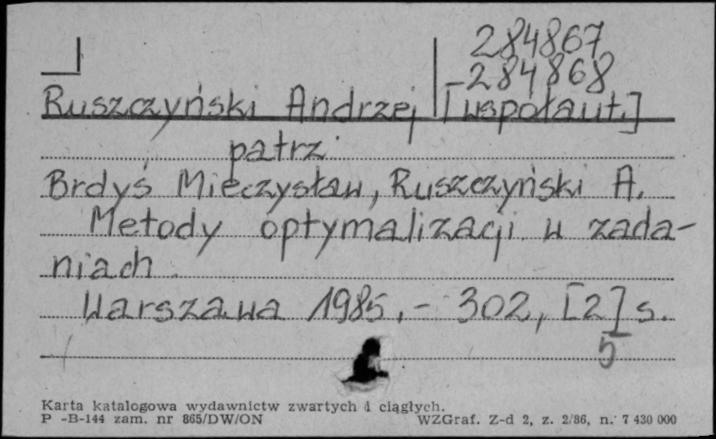 284867
-284868
Ruszczyński Andrzej [współaut.]
patrz
Brdyś Mieczysław, Ruszczyński A.
Metody optymalizacji w zada-
niach.
Warszawa 1985.- 302, [2] s.
5
Karta katalogowa wydawnictw zwartych i ciągłych.
P -B-144 zam. nr 865/DW/ON WZGraf. Z-d 2, z. 2/86, n. 7 430 000